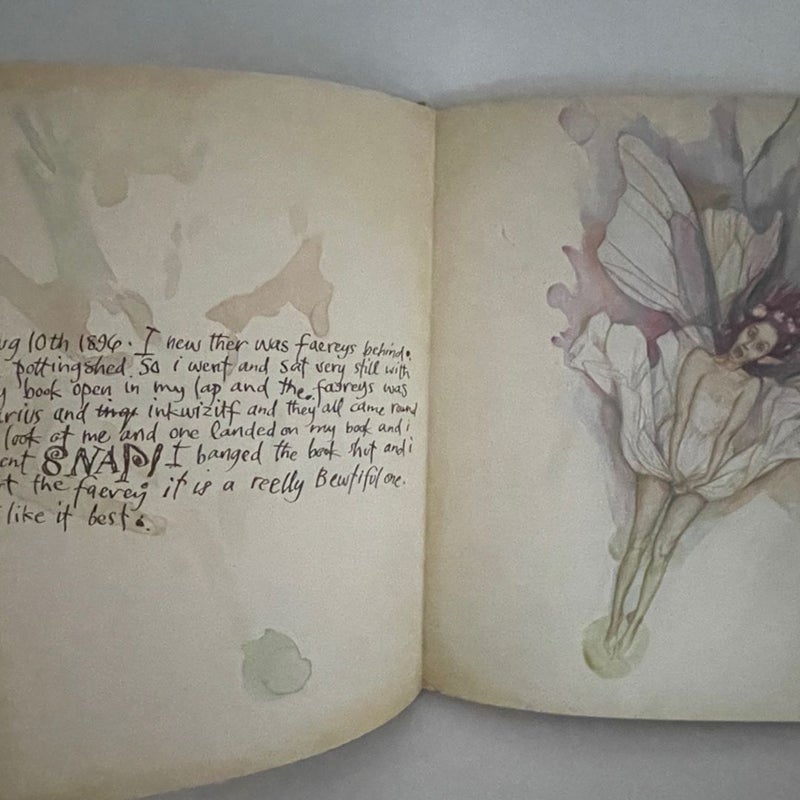 ug 10th 1896. I new ther was faereys behind.
pottingshed. So i went and sat very still with
y book open in my lap and the faereys was
rius and inkwizitf and they all came round
look at me and one landed on my book and i
ent SNAP! I banged the book shut and i
t the faerey it is a reelly Bewtiful one.
like it best.